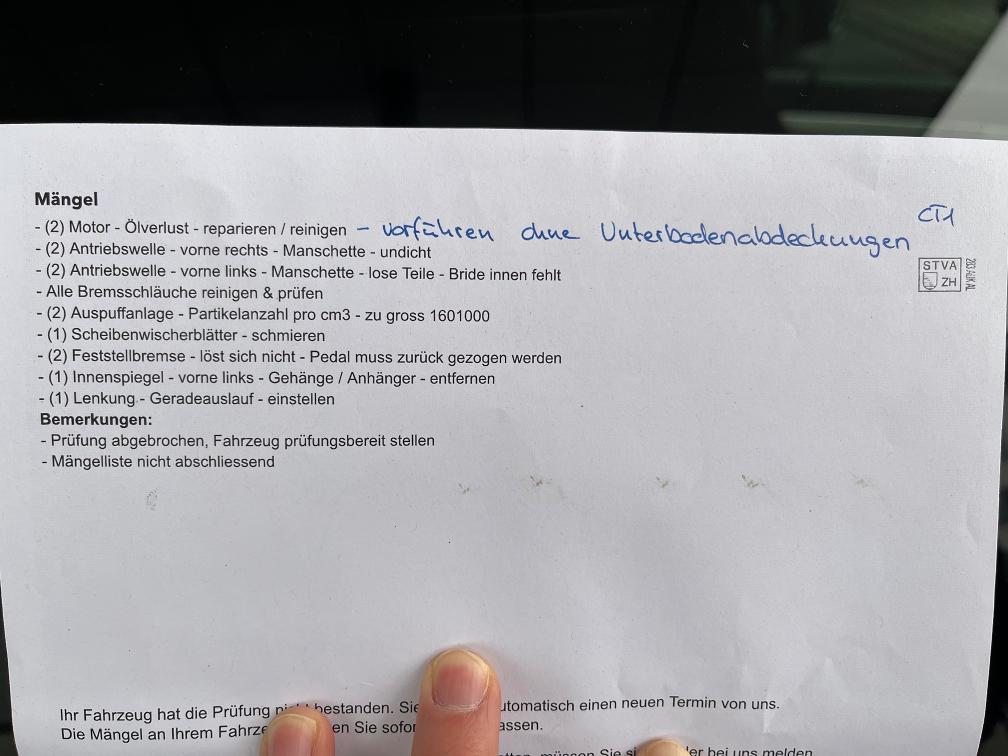 Mängel
- (2) Motor - Ölverlust - reparieren / reinigen - vorführen ohne Unterbodenabdeckungen CT1
- (2) Antriebswelle - vorne rechts - Manschette - undicht
- (2) Antriebswelle - vorne links - Manschette - lose Teile - Bride innen fehlt
STVA
ZH
- Alle Bremsschläuche reinigen & prüfen
- (2) Auspuffanlage - Partikelanzahl pro cm3 - zu gross 1601000
- (1) Scheibenwischerblätter - schmieren
- (2) Feststellbremse - löst sich nicht - Pedal muss zurück gezogen werden
- (1) Innenspiegel - vorne links - Gehänge / Anhänger - entfernen
- (1) Lenkung - Geradeauslauf - einstellen
Bemerkungen:
- Prüfung abgebrochen, Fahrzeug prüfungsbereit stellen
- Mängelliste nicht abschliessend
Ihr Fahrzeug hat die Prüfung bestanden. einen neuen Termin von uns.
Die Mängel an Ihrem Sie
bei uns melden